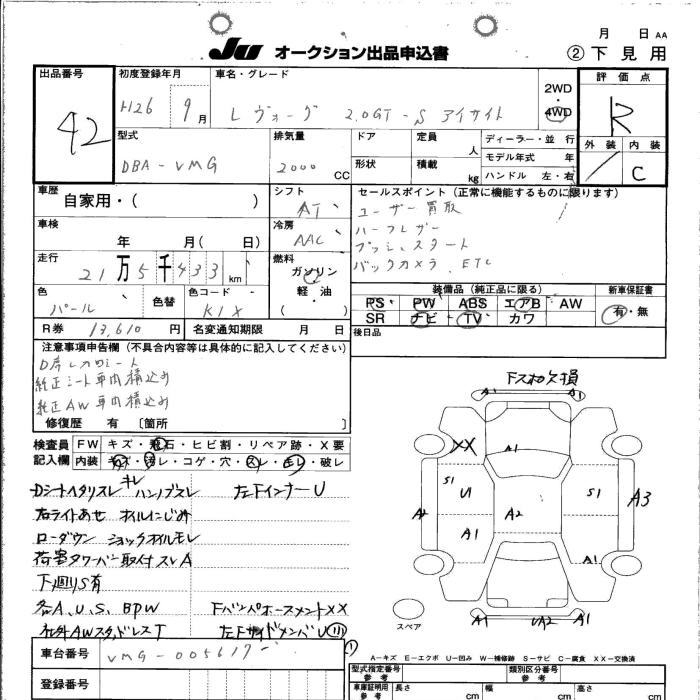 月 日 AA
JU オークション出品申込書 ②下見用
出品番号 初度登録年月 車名・グレード 評価点
42 H26 9月 レヴォーグ 2.0GT-S アイサイト 2WD・4WD R
型式 排気量 ドア 定員 人 ディーラー・並行 外装 内装
DBA-VMG 2000 CC 形状 積載 kg モデル年式 年 C
ハンドル 左・右
車歴 シフト セールスポイント(正常に機能するものに限ります)
自家用・( ) AT ユーザー買取
車検 冷房 ハーフレザー
年 月( 日) AAC プッシュスタート
走行 燃料 バックカメラ、ETC
21万5千433km ガソリン 装備品(純正品に限る) 新車保証書
色 色替 色コード 軽・油 PS PW ABS エアB AW 有・無
パール K1X ( ) SR ナビ TV カワ
R券 13,610円 名変通知期限 月 日 後日品
注意事項申告欄(不具合内容等は具体的に記入してください)
D席レカロシート
純正シート車内積込み
純正AW車内積込み
修復歴 有 [箇所 ]
検査員 FW キズ・飛石・ヒビ割・リペア跡・X要
記入欄 内装 キズ・汚レ・コゲ・穴・スレ・キレ・破レ
下スポ欠損
A1 A1
XX A1
S1 U1 S1 A3
A2 A2
A1 A1
A1 UA2 A1
スペア
Dシートヘタリスレキレ ハンノブスレ 左Fインナー U
右ライトあせ オイルにじみ
ローダウン ショックオイルモレ
荷室タワーバー取付スレA
下廻りS有
各A、U、S、BPW FバンパホースメントXX
社外AWスタッドレスT 左FサイドメンバU
A−キズ E−エクボ U−凹み W−補修跡 S−サビ C−腐食 XX−交換済
車台番号 VMG-005617 型式指定番号 類別区分番号
参考 参考
登録番号 車庫証明用 参考 長さ cm 幅 cm 高さ cm